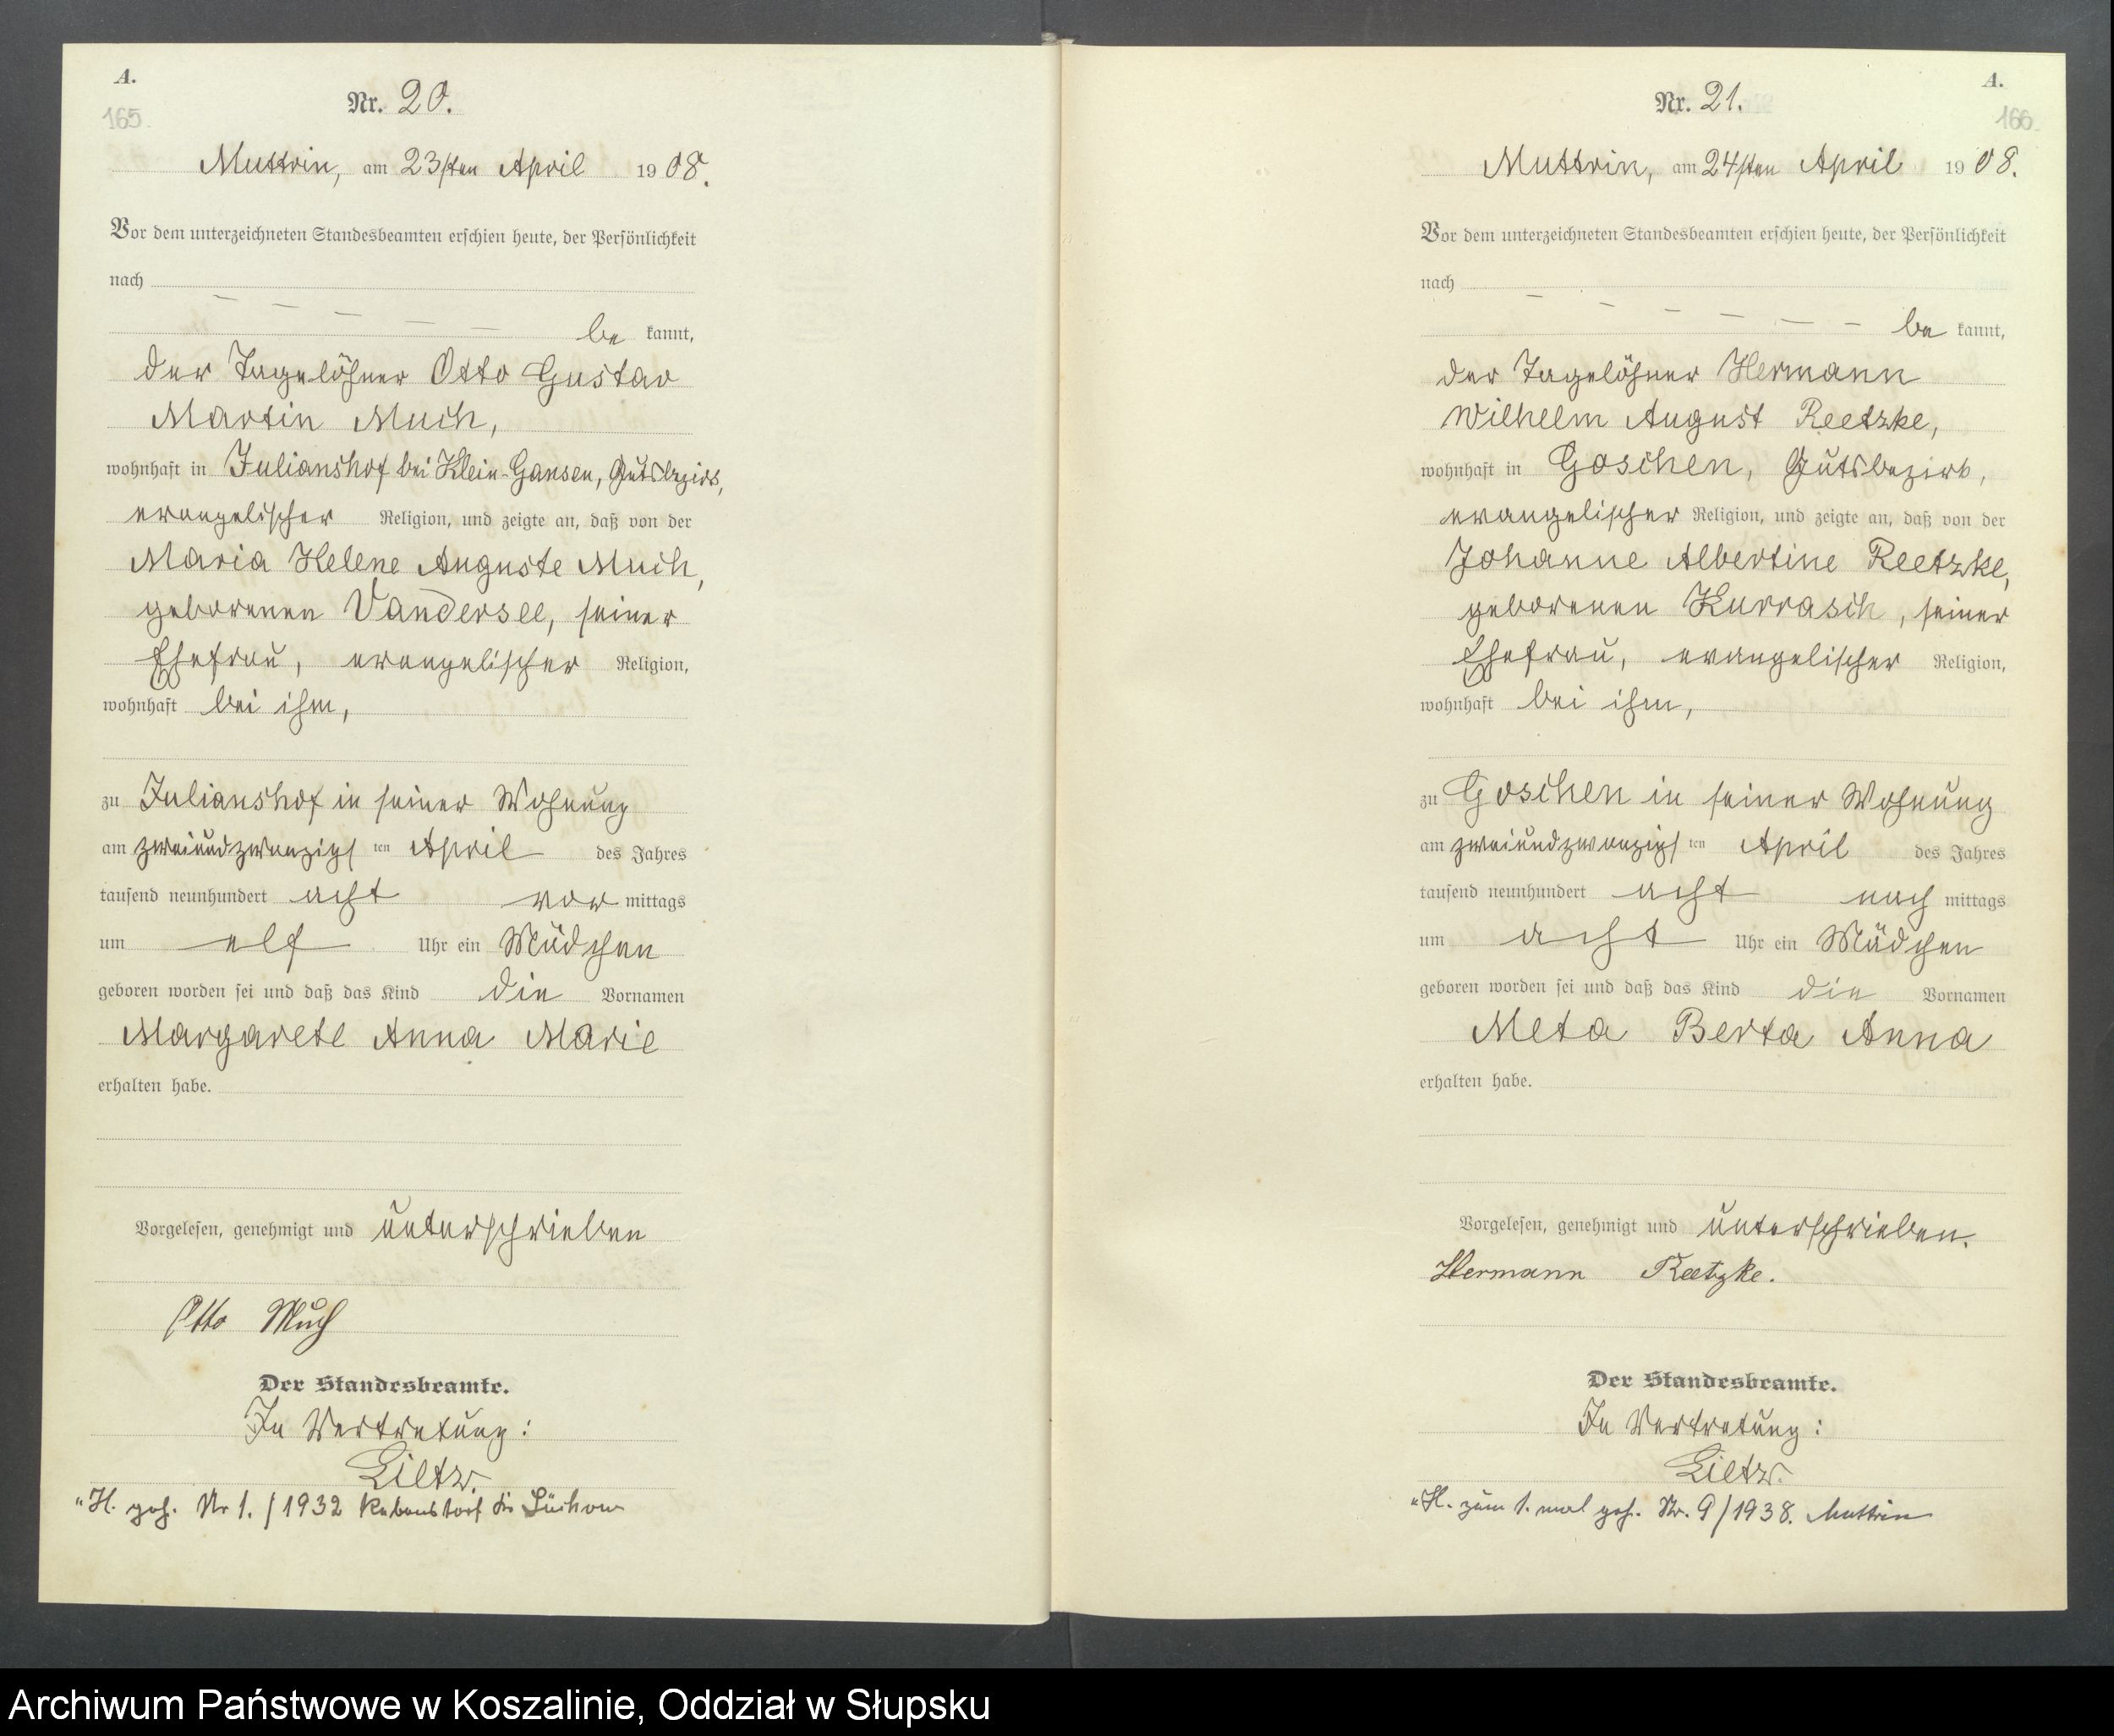 A.
165.
Nr. 20.
Muttrin, am 23sten April 1908.
Vor dem unterzeichneten Standesbeamten erschien heute, der Persönlichkeit
nach
— — — — — be kannt,
der Tagelöhner Otto Gustav
Martin Much,
wohnhaft in Julianshof bei Klein-Gansen, Gutsbezirk,
evangelischer Religion, und zeigte an, daß von der
Maria Helene Auguste Much,
geborenen Vandersee, seiner
Ehefrau, evangelischer Religion,
wohnhaft bei ihm,
zu Julianshof in seiner Wohnung
am zweiundzwanzigsten April des Jahres
tausend neunhundert acht vor mittags
um elf Uhr ein Mädchen
geboren worden sei und daß das Kind die Vornamen
Margarete Anna Marie
erhalten habe.
Vorgelesen, genehmigt und unterschrieben
Otto Much
Der Standesbeamte.
In Vertretung:
Lietz.
"H. gesch. Nr 1. / 1932 Lüchow
A.
166.
Nr. 21.
Muttrin, am 24sten April 1908.
Vor dem unterzeichneten Standesbeamten erschien heute, der Persönlichkeit
nach
— — — — — — be kannt,
der Tagelöhner Hermann
Wilhelm August Reetzke,
wohnhaft in Goschen, Gutsbezirk,
evangelischer Religion, und zeigte an, daß von der
Johanne Albertine Reetzke,
geborenen Kurrasch, seiner
Ehefrau, evangelischer Religion,
wohnhaft bei ihm,
zu Goschen in seiner Wohnung
am zweiundzwanzigsten April des Jahres
tausend neunhundert acht nach mittags
um acht Uhr ein Mädchen
geboren worden sei und daß das Kind die Vornamen
Meta Berta Anna
erhalten habe.
Vorgelesen, genehmigt und unterschrieben.
Hermann Reetzke.
Der Standesbeamte.
In Vertretung:
Lietz.
"H. zum 1. mal gesch. Nr. 9/1938. Muttrin
Archiwum Państwowe w Koszalinie, Oddział w Słupsku